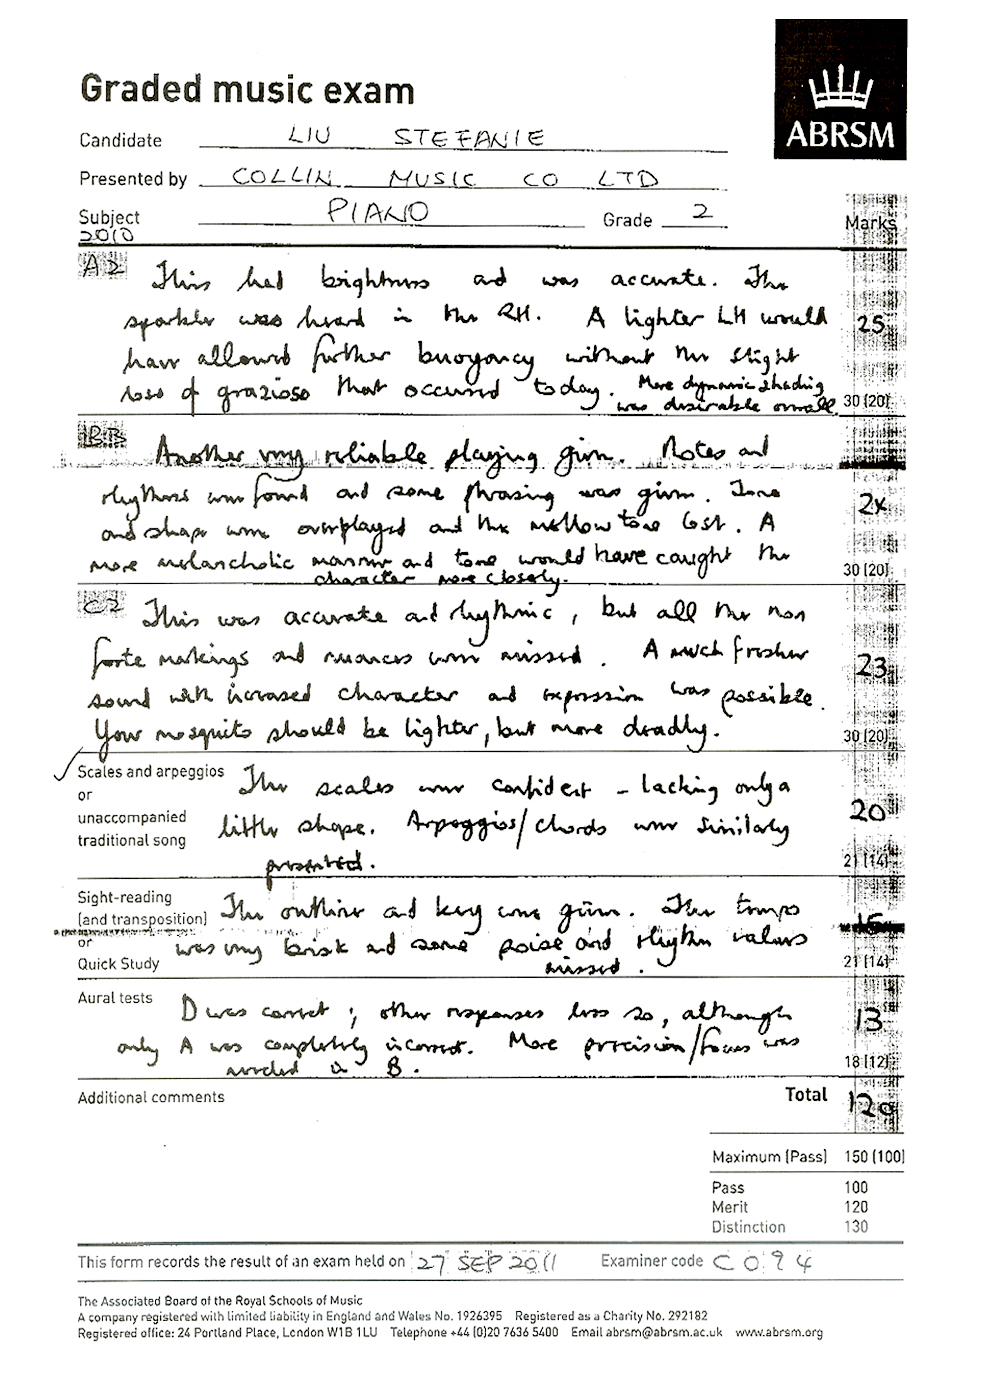 Graded music exam
ABRSM
Candidate LIU STEFANIE
Presented by COLLIN MUSIC CO LTD
Subject PIANO Grade 2 Marks
2010
A2 This had brightness and was accurate. The
sparkle was heard in the RH. A lighter LH would 25
have allowed further buoyancy without the slight
loss of grazioso that occured today. More dynamic shading
was desirable overall. 30 (20)
B3 Another very reliable playing given. Notes and
rhythms were found and some phrasing was given. Tone
and shape were overplayed and the mellow tone lost. A
more melancholic manner and tone would have caught the
character more closely. 30 (20)
C2 This was accurate and rhythmic, but all the non
forte markings and nuances were missed. A much fresher 23
sound with increased character and expression was possible.
Your mosquito should be lighter, but more deadly. 30 (20)
Scales and arpeggios
or
unaccompanied
traditional song
The scales were confident – lacking only a
little shape. Arpeggios/chords were similarly
presented.
20
21 (14)
Sight-reading
(and transposition)
or
Quick Study
The outline and key were given. The tempo
was very brisk and some poise and rhythm values
missed.
21 (14)
Aural tests D was correct; other responses less so, although
only A was completely incorrect. More precision/focus was
needed in B.
13
18 (12)
Additional comments Total 120
Maximum (Pass) 150 (100)
Pass 100
Merit 120
Distinction 130
This form records the result of an exam held on 27 SEP 2011 Examiner code C094
The Associated Board of the Royal Schools of Music
A company registered with limited liability in England and Wales No. 1926395 Registered as a Charity No. 292182
Registered office: 24 Portland Place, London W1B 1LU Telephone +44 (0)20 7636 5400 Email abrsm@abrsm.ac.uk www.abrsm.org